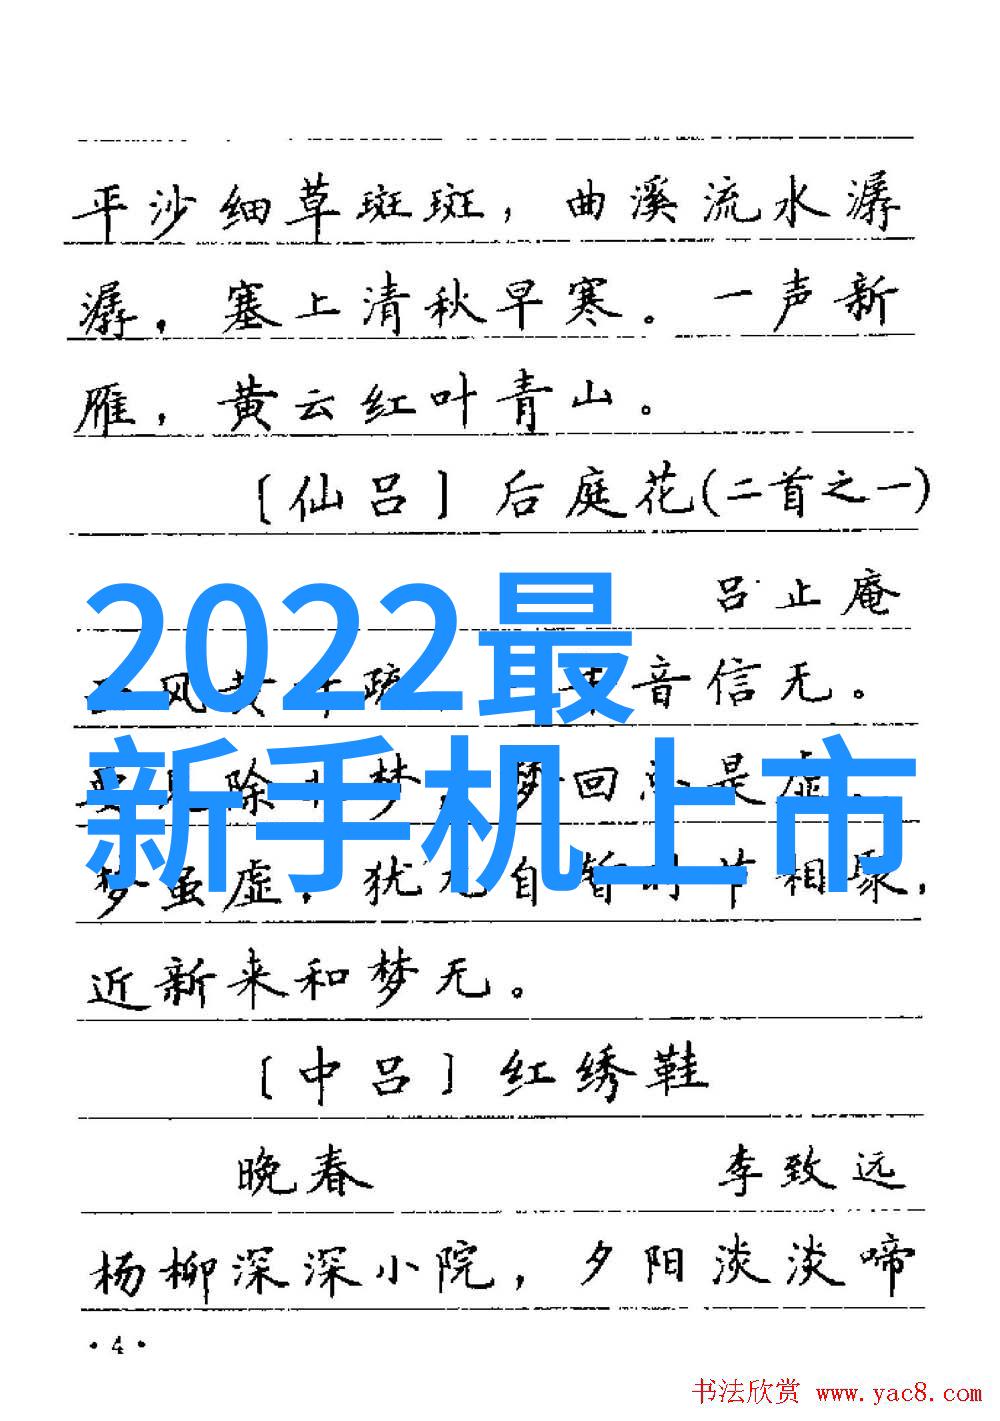 平沙细草斑斑，曲溪流水潺
潺，塞上清秋早寒。一声新
雁，黄云红叶青山。
〔仙吕〕后庭花(二首之一)
吕止庵
风黄 疏 音信无。
除 梦，梦回 是虚。
梦虽虚，犹 自暂时节相聚，
近新来和梦无。
〔中吕〕红绣鞋
晚春 李致远
杨柳深深小院，夕阳淡淡啼
·4·
2022最
新手机上市
书法欣赏 www.yac8.com